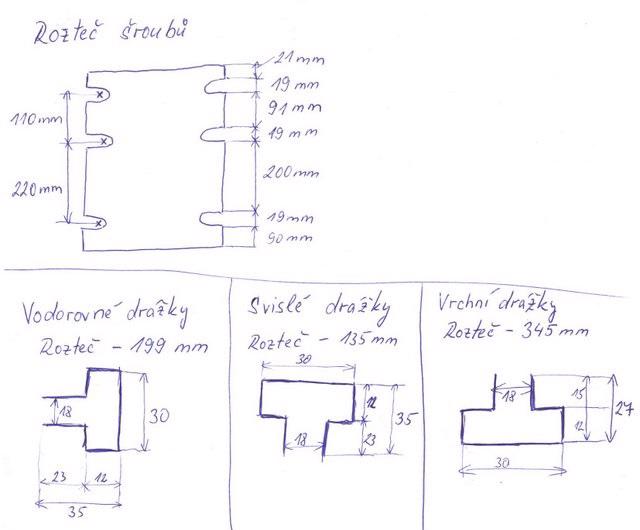 Rozteč šroubů
21mm
19 mm
91mm
19 mm
200mm
19mm
90mm
110mm
220mm
Vodorovné drážky
Rozteč - 199 mm
18
30
23
12
35
Svislé drážky
Rozteč - 135mm
30
12
35
23
18
Vrchní drážky
Rozteč - 345mm
18
15
27
12
30